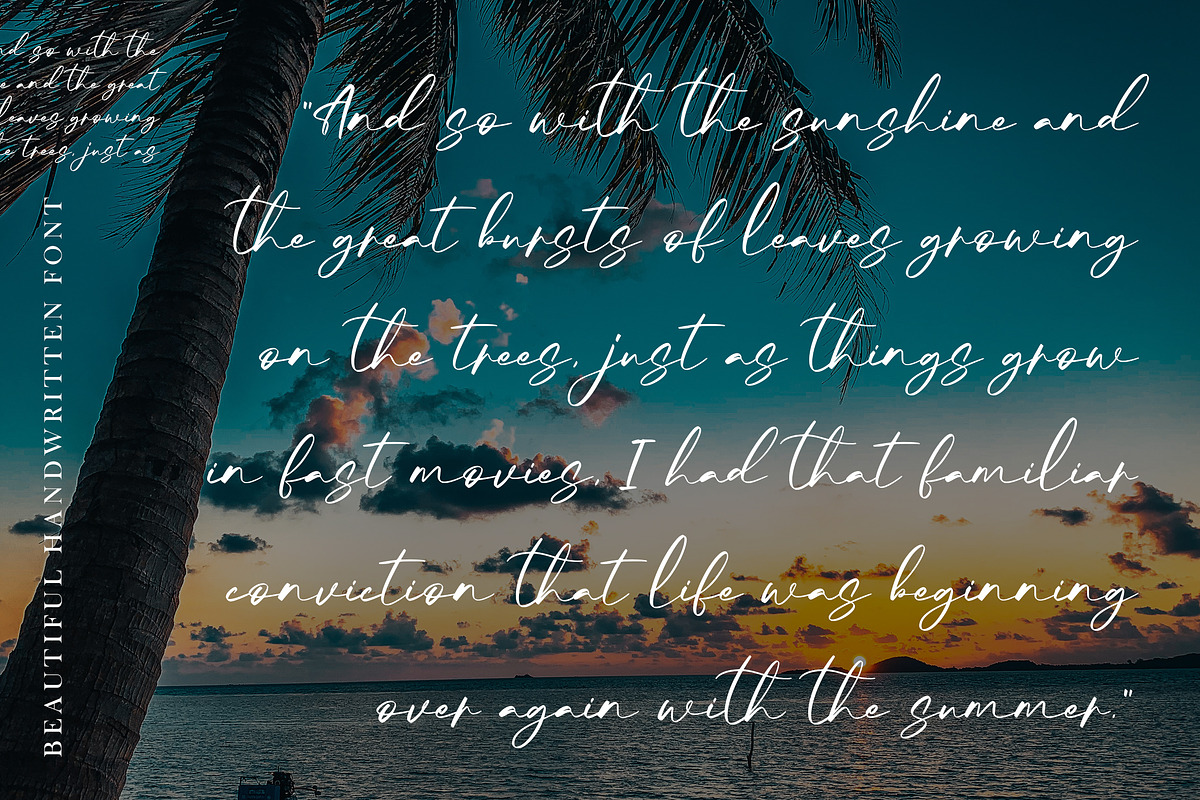 nd so with the
e and the great
leaves growing
e trees, just as
BEAUTIFUL HANDWRITTEN FONT
"And so with the sunshine and
the great bursts of leaves growing
on the trees, just as things grow
in fast movies, I had that familiar
conviction that life was beginning
over again with the summer."